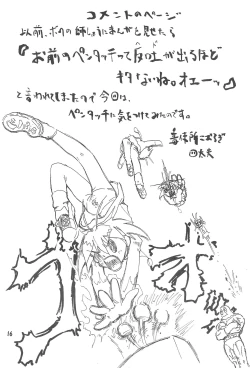 コメントのページ
以前、ボクの師しょうにまんがを見せたら
『お前のペンタッチって反吐が出るほど
キタないね。オエーっ』
と言われてしまったので今回は、
ペンタッチに気をつけてみたのです。
16